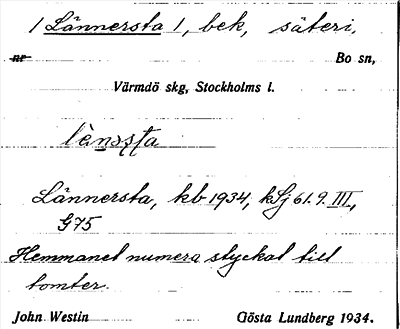 1 Lännersta 1, bek, säteri,
nr Bo sn,
Värmdö skg, Stockholms l.
Lännersta, kb 1934, kSj 61.9.III,
G75
Hemmanet numera styckat till
tomter.
John Westin Gösta Lundberg 1934.